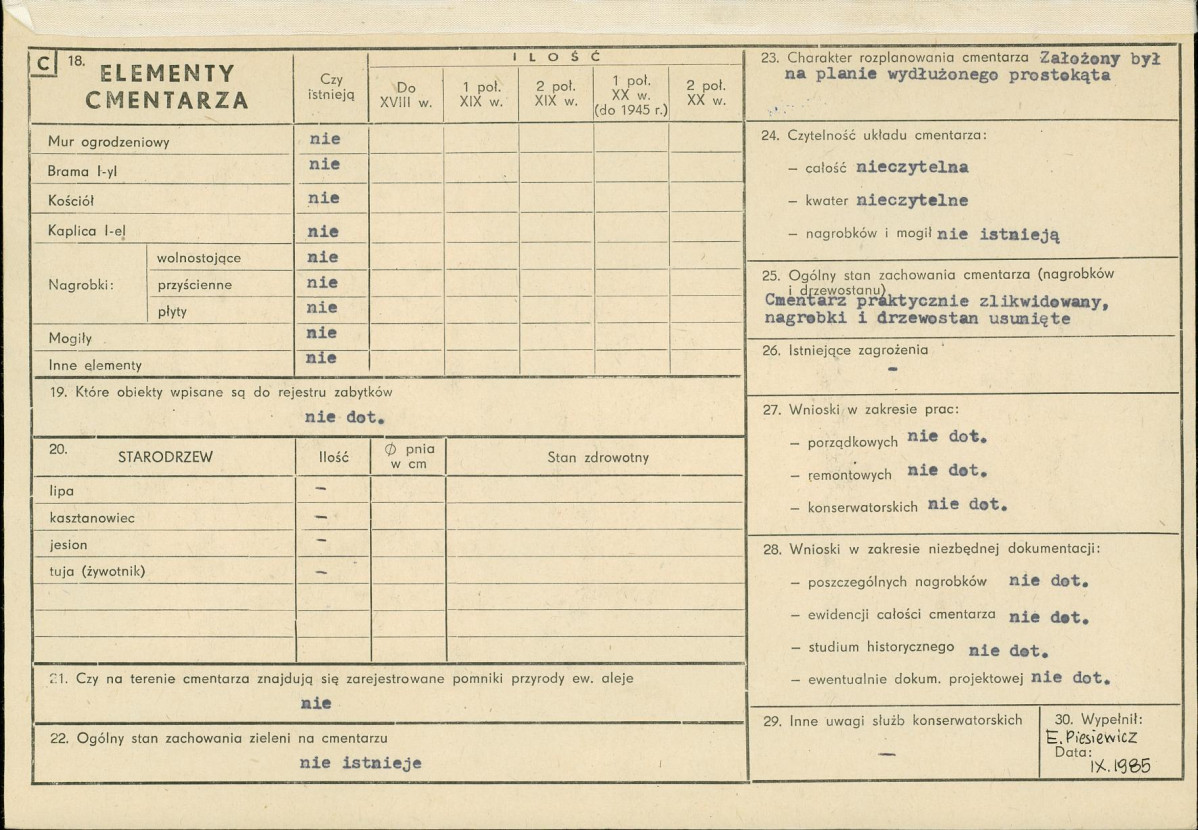 C 18. ELEMENTY CMENTARZA
Czy istnieją
ILOŚĆ
Do XVIII w.
1 poł. XIX w.
2 poł. XIX w.
1 poł. XX w. (do 1945 r.)
2 poł. XX w.
Mur ogrodzeniowy nie
Brama I-yl nie
Kościół nie
Kaplica I-el nie
Nagrobki: wolnostojące nie
przyścienne nie
płyty nie
Mogiły nie
Inne elementy nie
19. Które obiekty wpisane są do rejestru zabytków
nie dot.
20. STARODRZEW Ilość Ø pnia w cm Stan zdrowotny
lipa –
kasztanowiec –
jesion –
tuja (żywotnik) –
21. Czy na terenie cmentarza znajdują się zarejestrowane pomniki przyrody ew. aleje
nie
22. Ogólny stan zachowania zieleni na cmentarzu
nie istnieje
23. Charakter rozplanowania cmentarza Założony był
na planie wydłużonego prostokąta
24. Czytelność układu cmentarza:
– całość nieczytelna
– kwater nieczytelne
– nagrobków i mogił nie istnieją
25. Ogólny stan zachowania cmentarza (nagrobków
i drzewostanu)
Cmentarz praktycznie zlikwidowany,
nagrobki i drzewostan usunięte
26. Istniejące zagrożenia
–
27. Wnioski w zakresie prac:
– porządkowych nie dot.
– remontowych nie dot.
– konserwatorskich nie dot.
28. Wnioski w zakresie niezbędnej dokumentacji:
– poszczególnych nagrobków nie dot.
– ewidencji całości cmentarza nie dot.
– studium historycznego nie dot.
– ewentualnie dokum. projektowej nie dot.
29. Inne uwagi służb konserwatorskich
–
30. Wypełnił:
E. Piesiewicz
Data:
IX.1985